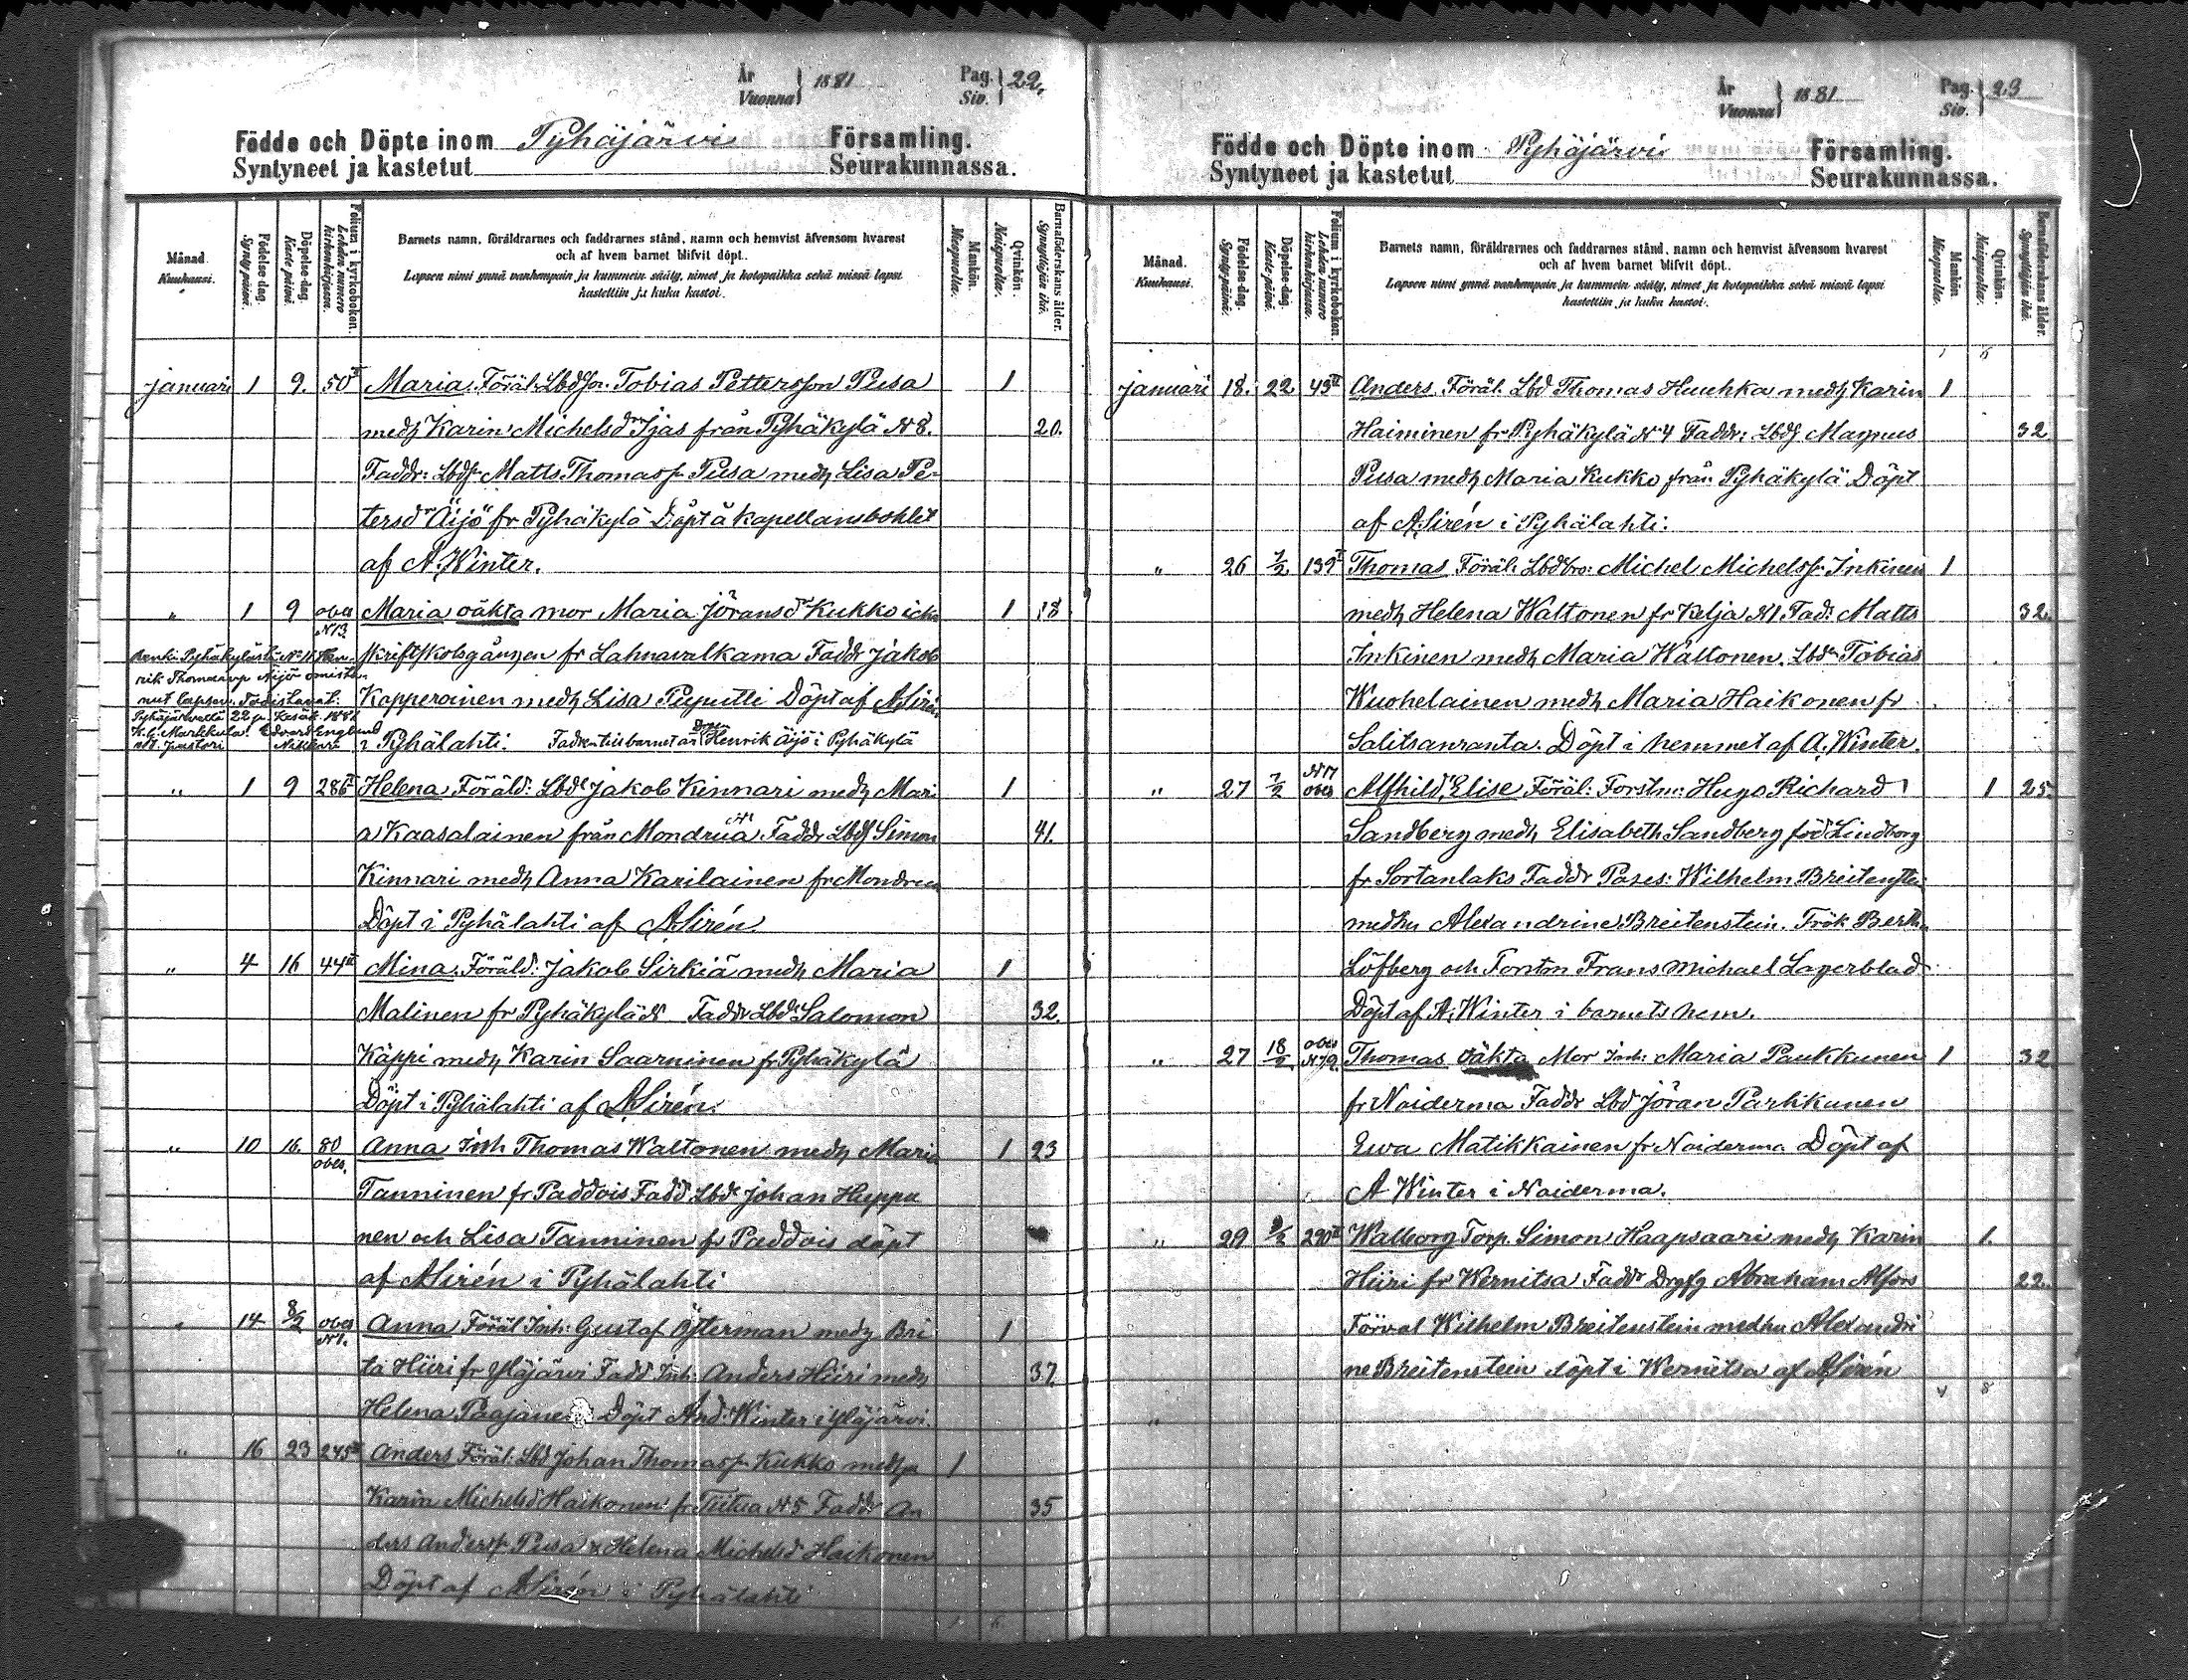 År
Vuonna } 1881
Pag.
Siv. } 22.
Födde och Döpte inom Pyhäjärvi Församling.
Syntyneet ja kastetut Seurakunnassa.
Månad.
Kuukausi.
Födelse-dag.
Synty-päivä.
Döpelse-dag.
Kaste-päivä.
Folium i kyrkoboken.
Lehden numero kirkonkirjassa.
Barnets namn, föräldrarnes och faddrarnes stånd, namn och hemvist äfvensom hvarest
och af hvem barnet blifvit döpt.
Lapsen nimi ynnä vanhempain ja kummein sääty, nimet ja kotopaikka sekä missä lapsi
kastettiin ja kuka kastoi.
Mankön.
Miespuolia.
Qvinkön.
Naispuolia.
Barnaföderskans ålder.
Synnyttäjän ikä.
januari 1 9. 50 Maria. Föräl: Lbdson. Tobias Pettersson Pusa 1
medh Karin Michelsdr Ijas från Pyhäkylä N 8. 20.
Faddr: Lbds Matts Thomass Pusa medh Lisa Pe-
tersdr Äijö fr Pyhäkylä Döpt å kapellansbohlet
af A. Winter.
" 1 9 obes N13 Maria oäkta mor Maria Jöransdr Kukko icke 1 18
skriftskolegången fr Lahnavalkama Faddr Jakob
Kapperoinen medh Lisa Puputti Döpt af A Sirén
i Pyhälahti. Fadren till barnet är Henrik Äijö i Pyhäkylä
" 1 9 286 Helena, Föräld: Lbd Jakob Kinnari medh Mari- 1
a Kaasalainen från Mondrua Faddr Lbds Simon 41.
Kinnari medh Anna Karilainen fr Mondrua
Döpt i Pyhälahti af A Sirén
" 4 16 44 Mina. Föräld: Jakob Sirkiä medh Maria 1
Malinen fr Pyhäkylä Faddr Lbd Salomon 32.
Käppi medh Karin Saarninen fr Pyhäkylä
Döpt i Pyhälahti af A Sirén.
" 10 16. 80 obes. Anna Inh Thomas Waltonen medh Maria 1 23
Tanninen fr Paddois Fadd Lbd Johan Huppu
nen och Lisa Tanninen fr Paddois döpt
af A Sirén i Pyhälahti
" 14 8/2 obes N1. Anna Föräl Inh: Gustaf Österman medh Bri 1
ta Hiiri fr Yläjärvi Fadd Inh: Anders Hiiri medh 37.
Helena Paajane Döpt And: Winter i Yläjärvi.
" 16 23 275 Anders Föräl: Lbd Johan Thomass Kukko medh 1
Karin Michelsd Haikonen fr Tiitua N 5 Faddr An 35
ders Anderss Pusa & Helena Michelsd Haikonen
Döpt af A Sirén i Pyhälahti
År
Vuonna } 1881
Pag.
Siv. } 23
Födde och Döpte inom Pyhäjärvi Församling.
Syntyneet ja kastetut Seurakunnassa.
Månad.
Kuukausi.
Födelse-dag.
Synty-päivä.
Döpelse-dag.
Kaste-päivä.
Folium i kyrkoboken.
Lehden numero kirkonkirjassa.
Barnets namn, föräldrarnes och faddrarnes stånd, namn och hemvist äfvensom hvarest
och af hvem barnet blifvit döpt.
Lapsen nimi ynnä vanhempain ja kummein sääty, nimet ja kotopaikka sekä missä lapsi
kastettiin ja kuka kastoi.
Mankön.
Miespuolia.
Qvinkön.
Naispuolia.
Barnaföderskans ålder.
Synnyttäjän ikä.
januari 18. 22 43 Anders. Föräl. Lbd Thomas Huuhka medh Karin 1
Haiminen fr Pyhäkylä N 4 Faddr: Lbds Magnus 32
Pusa medh Maria Kukko från Pyhäkylä Döpt
af A Sirén i Pyhälahti.
" 26 7/2 139 Thomas Föräl. Lbdbro: Michel Michelss Inkinen 1
medh Helena Waltonen fr Kelja N1. Fad: Matts 32.
Inkinen medh Maria Waltonen. Lbd Tobias
Wuohelainen medh Maria Haikonen fr
Salitsanranta. Döpt i hemmet af A. Winter.
" 27 7/2 N17 obes Alfhild, Elise Föräl: Forstm: Hugo Richard 1 25.
Sandberg medh Elisabeth Sandberg föd Lindborg
fr Sortanlaks Faddr Poses: Wilhelm Breitenstein
medhu Alexandrine Breitenstein. Frök Bertha
Löfberg och Forstm Frans Michael Lagerblad
Döpt af A. Winter i barnets hem.
" 27 18/2 obes N79. Thomas oäkta Mor Inh: Maria Paukkunen 1 32
fr Noiderma Faddr Lbd Jöran Parkkunen
Ewa Matikkainen fr Noiderma Döpt af
A Winter i Noiderma.
" 29 9/2 290 Walborg Torp. Simon Haapsaari medh Karin 1.
Hiiri fr Wernitsa Faddr Drgfg Abraham Alfors 22.
Förval Wilhelm Breitenstein medhu Alexandri
ne Breitenstein döpt i Wernitsa af A Sirén
"